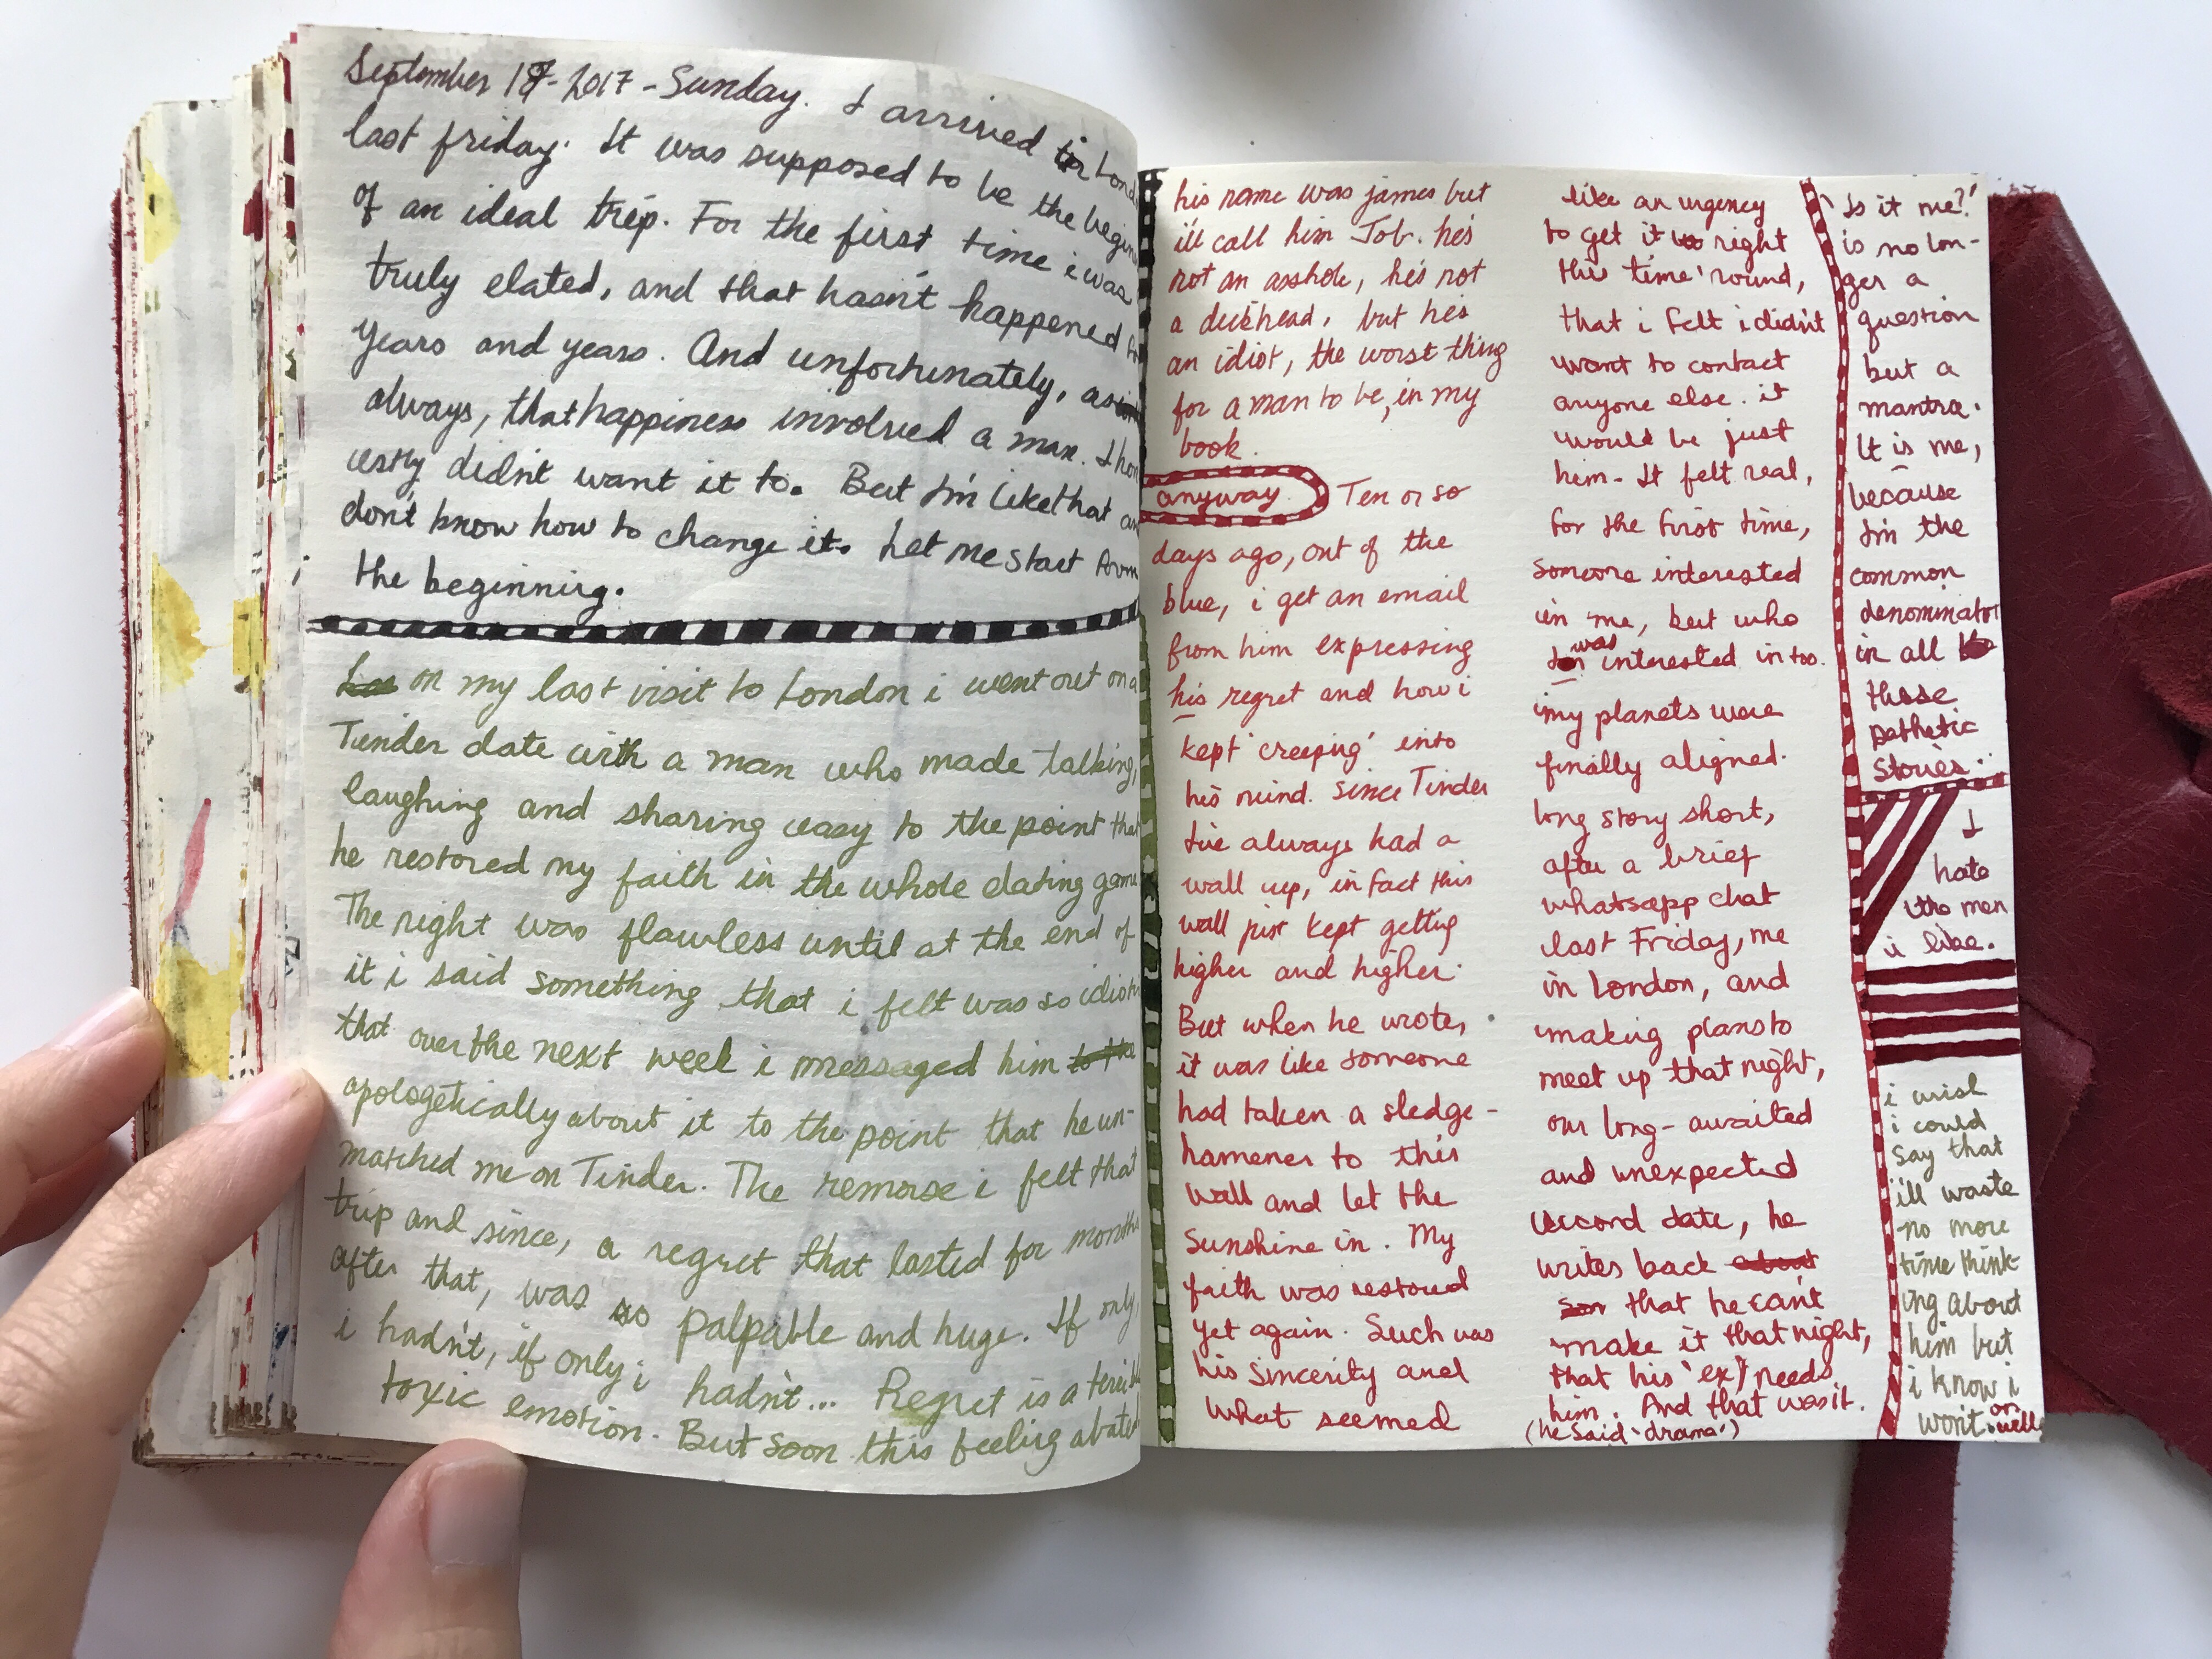 September 17-2017-Sunday. I arrived in Lond
last friday. It was supposed to be the begin
of an ideal trip. For the first time i was
truly elated, and that hasn't happened
years and years. And unfortunately, as
always, that happiness involved a man. I hon
estly didn't want it to. But I'm like that an
don't know how to change it. Let me start from
the beginning.
on my last visit to London i went out on a
Tinder date with a man who made talking,
laughing and sharing easy to the point that
he restored my faith in the whole dating game
The night was flawless until at the end of
it i said something that i felt was so idioti
that over the next week i messaged him to the
apologetically about it to the point that he un-
matched me on Tinder. The remorse i felt that
trip and since, a regret that lasted for months
after that, was so palpable and huge. If only
i hadn't, if only i hadn't... Regret is a terrible
toxic emotion. But soon this feeling abated
his name was james but
ill call him Job. he's
not an asshole, he's not
a dickhead, but he's
an idiot, the worst thing
for a man to be, in my
book.
anyway. Ten or so
days ago, out of the
blue, i get an email
from him expressing
his regret and how i
kept 'creeping' into
his mind. Since Tinder
I've always had a
wall up, in fact this
wall just kept getting
higher and higher.
But when he wrote,
it was like someone
had taken a sledge-
hammer to this
wall and let the
sunshine in. My
faith was restored
yet again. Such was
his sincerity and
what seemed
like an urgency
to get it right
this time 'round,
that i felt i didn't
want to contact
anyone else. it
would be just
him - It felt real,
for the first time,
someone interested
in me, but who
was
I interested in too.
my planets were
finally aligned.
long story short,
after a brief
whatsapp chat
last Friday, me
in London, and
making plans to
meet up that night,
our long-awaited
and unexpected
second date, he
writes back about
that he can't
make it that night,
that his 'ex' needs
him. And that was it.
(he said 'drama')
'Is it me?'
is no lon-
ger a
question
but a
mantra.
It is me,
because
I'm the
common
denominator
in all
these
pathetic
stories.
I
hate
the men
i like.
i wish
i could
say that
ill waste
no more
time think-
ing about
him but
i know i
won't or will